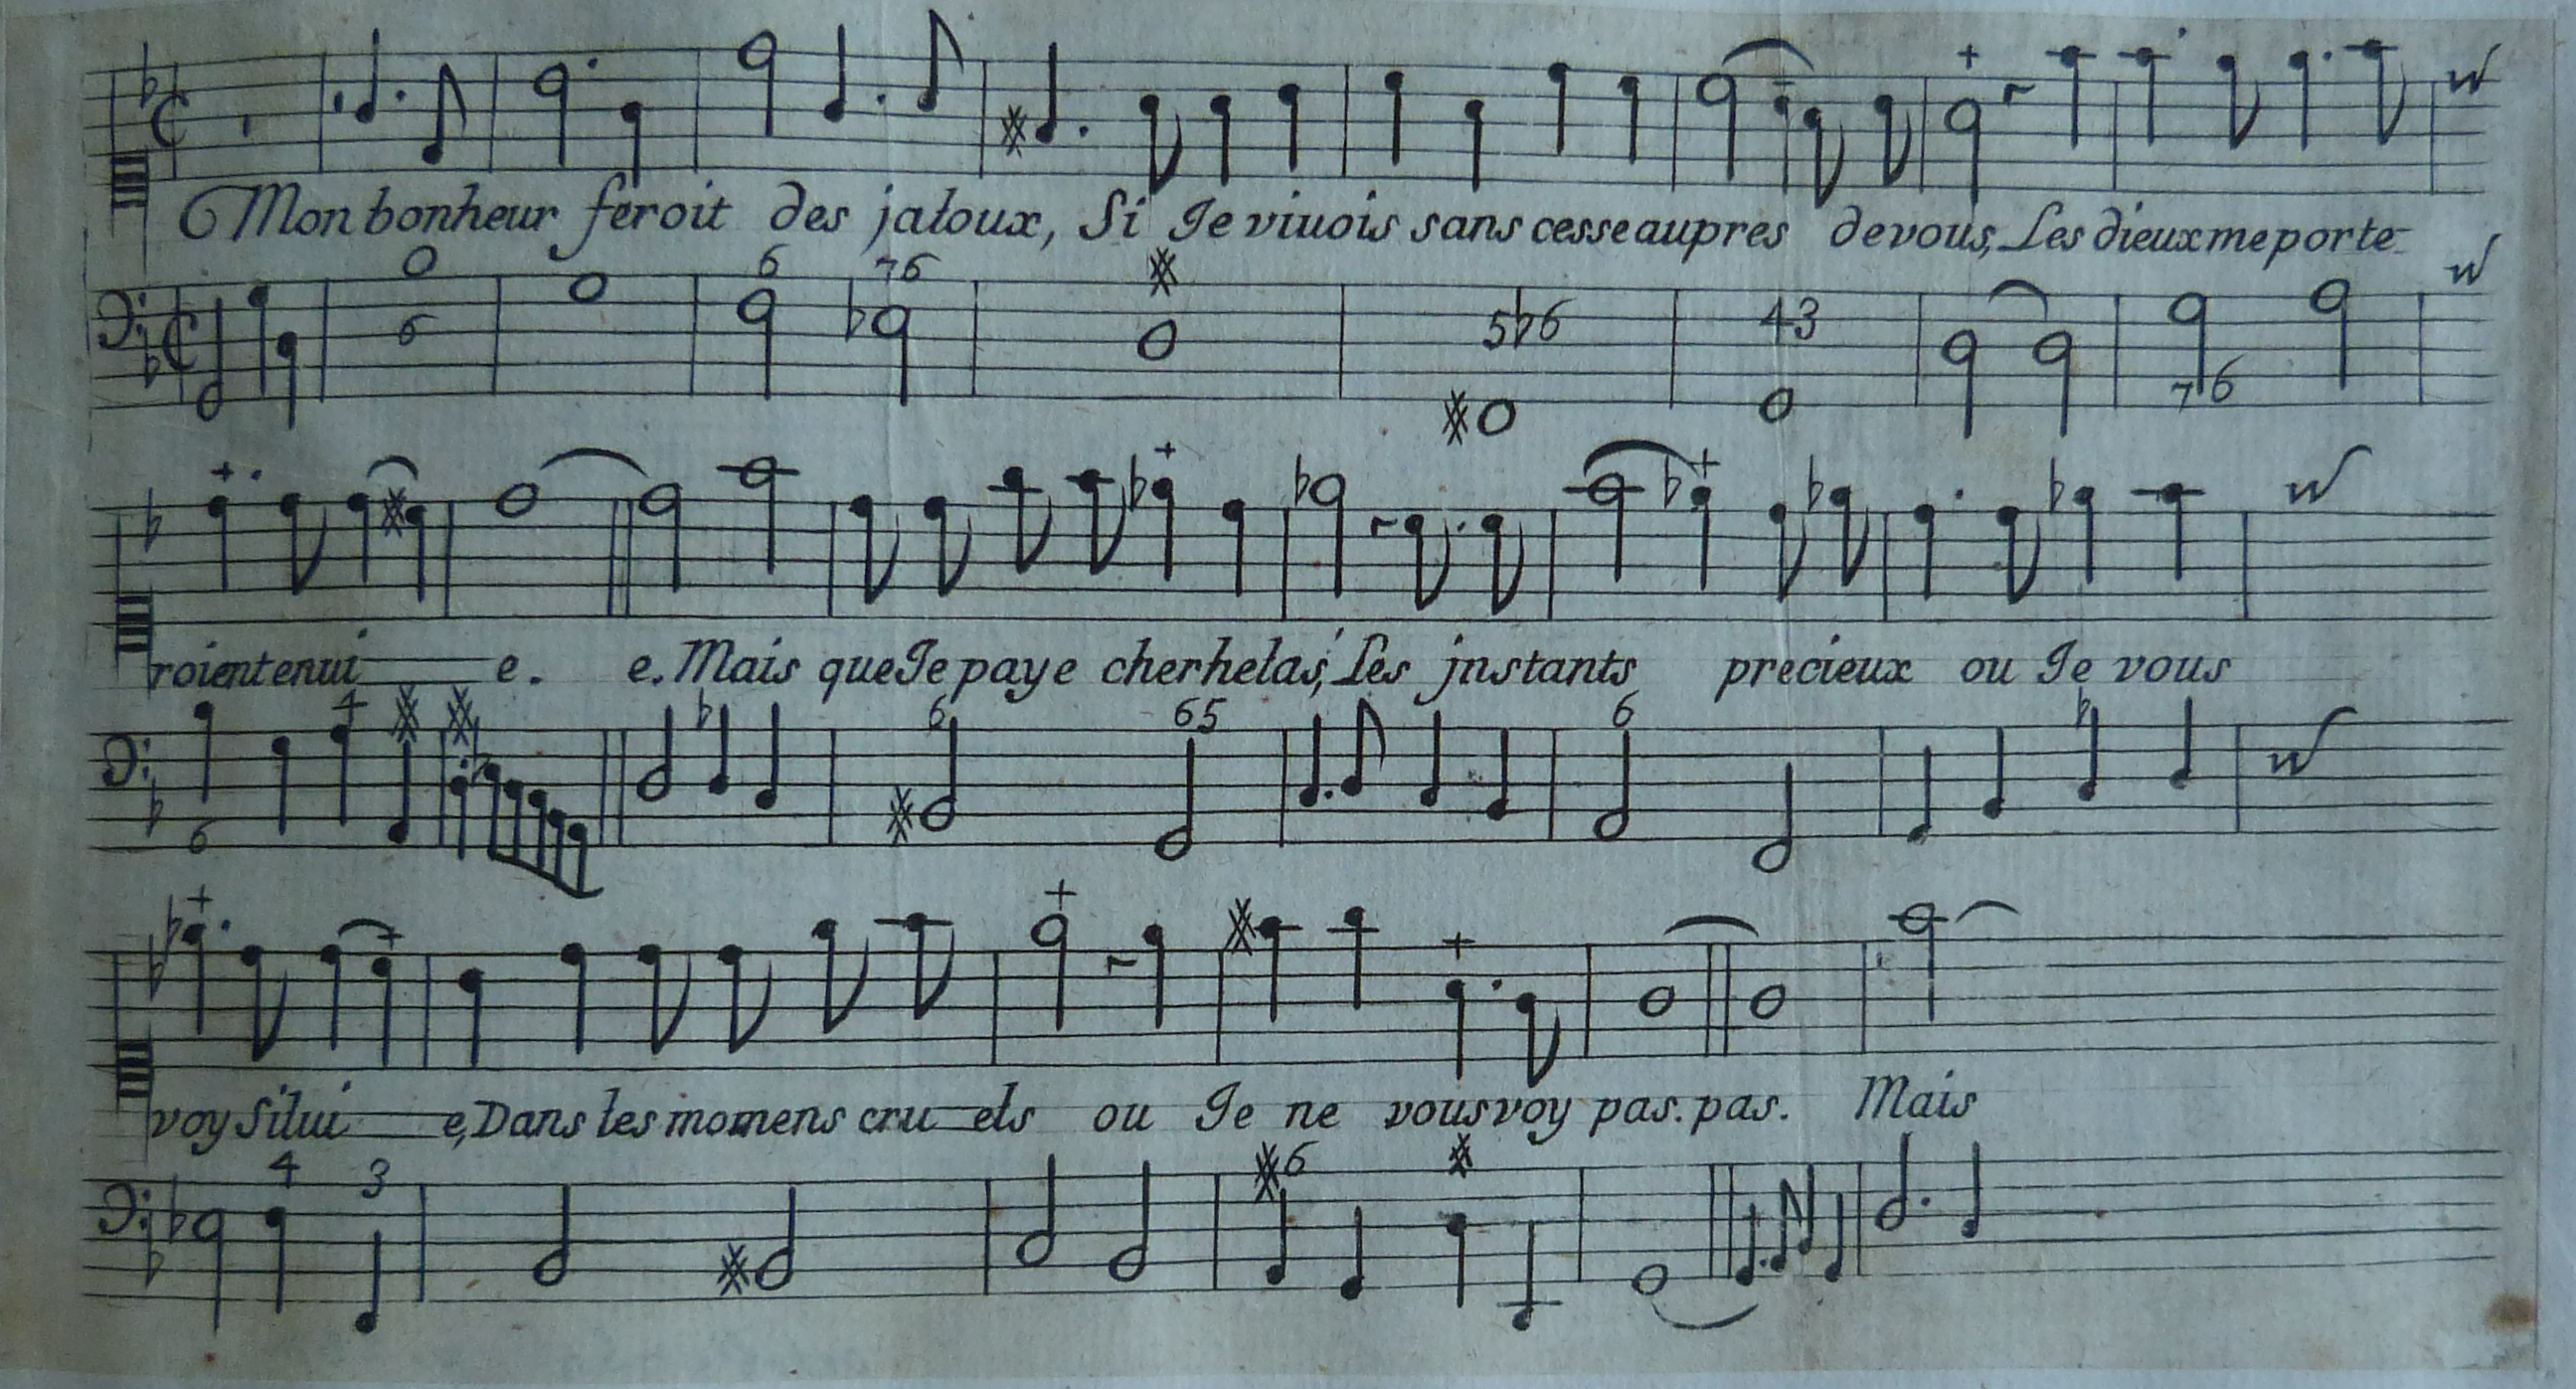 Mon bonheur feroit des jaloux, Si Je viuois sans cesse aupres de vous, Les dieux me porte-
6 76
6 5♭6 43
76
roient enui e. e. Mais que Je paye cher helas, Les jnstants precieux ou Je vous
4 6 65 6
6
voy Si lui e, Dans les momens cru els ou Je ne vous voy pas. pas. Mais
4 3 6